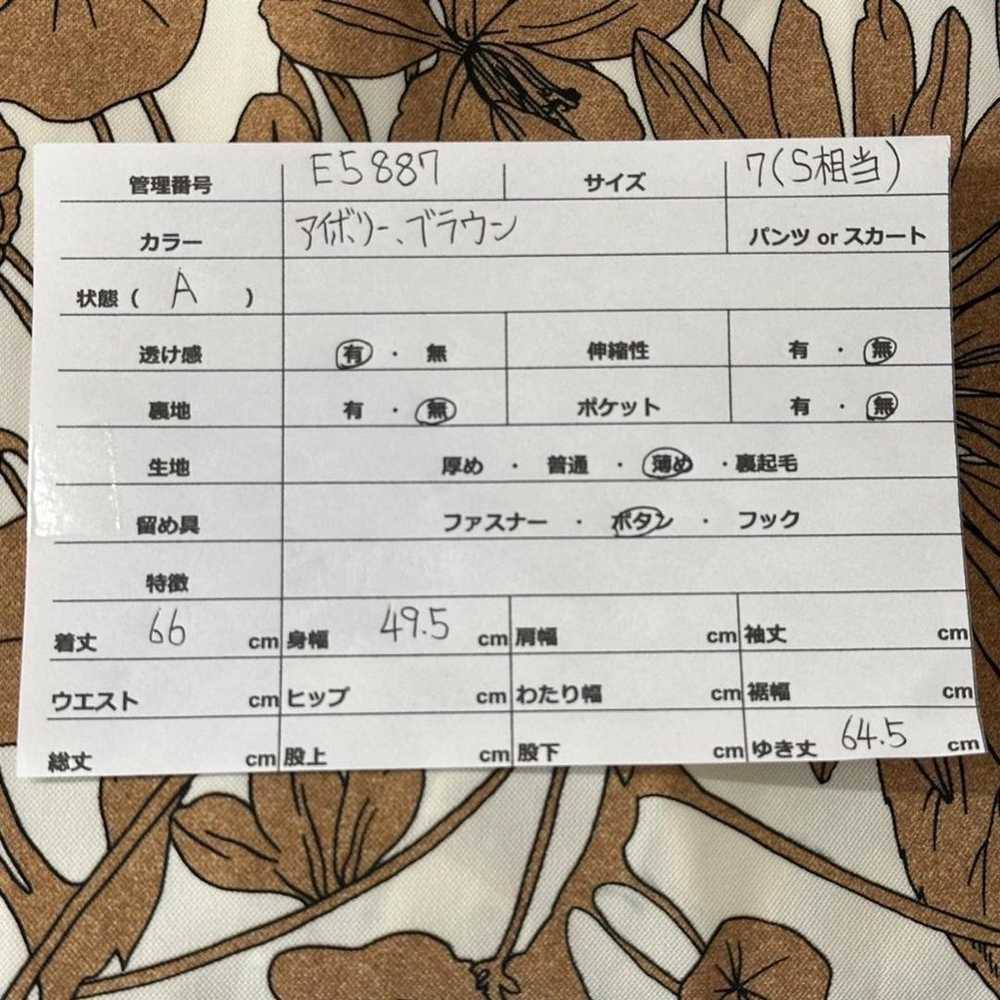 管理番号 E5887 サイズ 7(S相当)
カラー アイボリー、ブラウン パンツ or スカート
状態 ( A )
透け感 有 ・ 無 伸縮性 有 ・ 無
裏地 有 ・ 無 ポケット 有 ・ 無
生地 厚め ・ 普通 ・ 薄め ・ 裏起毛
留め具 ファスナー ・ ボタン ・ フック
特徴
着丈 66 cm 身幅 49.5 cm 肩幅 cm 袖丈 cm
ウエスト cm ヒップ cm わたり幅 cm 裾幅 cm
総丈 cm 股上 cm 股下 cm ゆき丈 64.5 cm